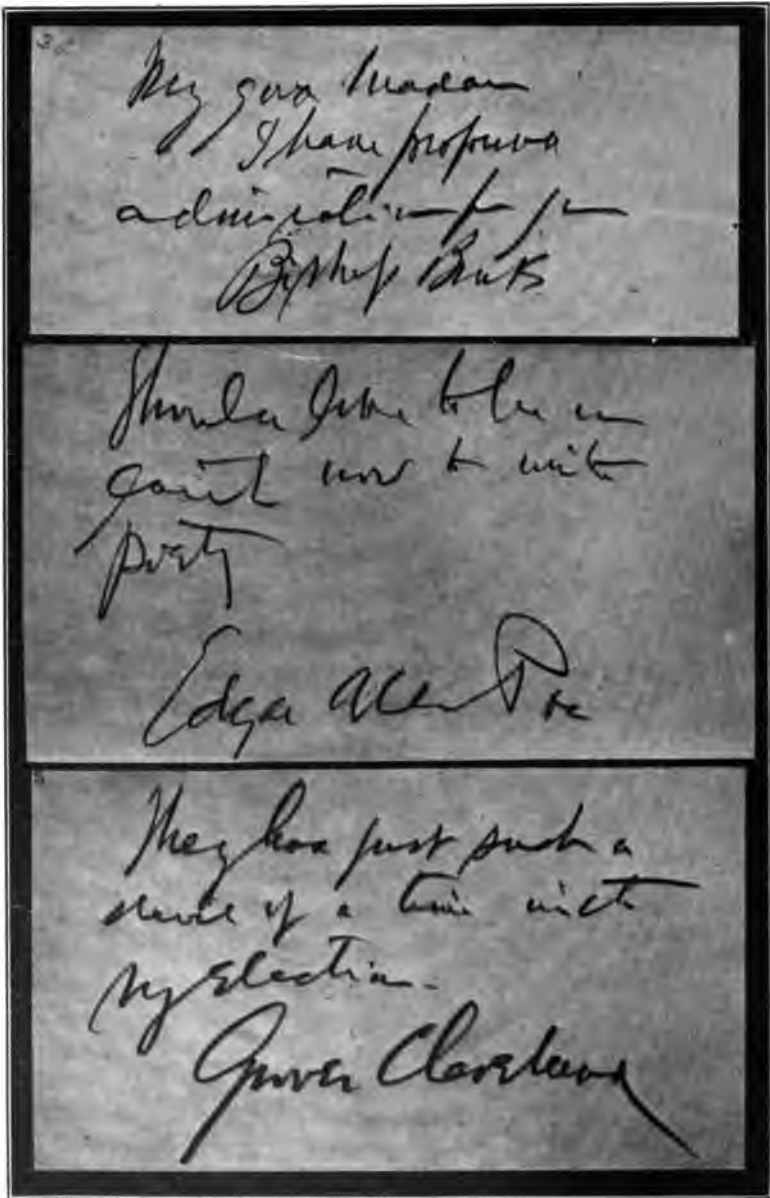 32
My good Madam
I have profound
admiration for you
Bishop Brooks
Should love to be on
earth now to write
poetry
Edgar Allen Poe
They had just such a
devil of a time with
my election.
Grover Cleveland